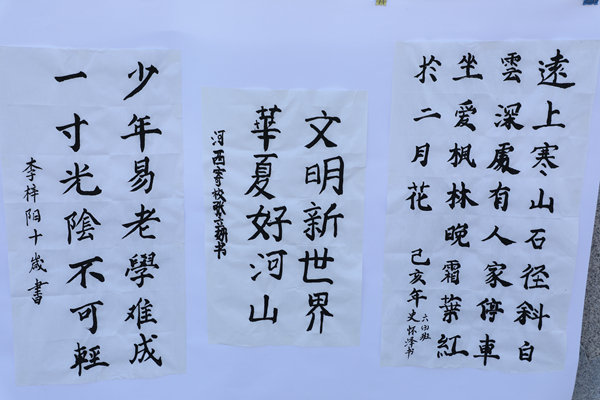 遠上寒山石径斜白
雲深處有人家停車
坐爱枫林晚霜葉紅
於二月花
己亥年史怀泽书
文明新世界
華夏好河山
河西学校书
少年易老學难成
一寸光陰不可輕
李梓阳十歲書